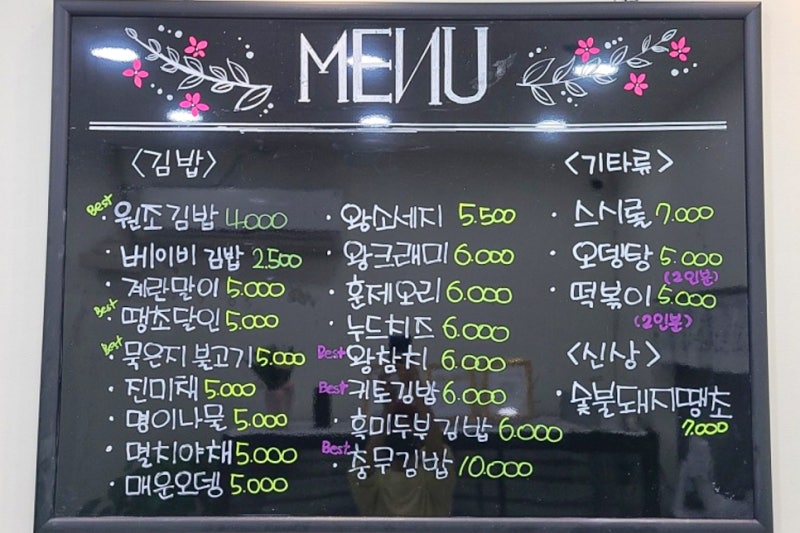 MENU
<김밥>
Best
· 원조김밥 4.000
· 베이비 김밥 2.500
· 계란말이 5.000
Best
· 땡초달인 5.000
Best
· 묵은지 불고기 5.000
· 진미채 5.000
· 명이나물 5.000
· 멸치야채 5.000
· 매운오뎅 5.000
· 왕소세지 5.500
· 왕크래미 6.000
· 훈제오리 6.000
· 누드치즈 6.000
Best 왕참치 6.000
Best · 키토김밥 6.000
· 흑미두부김밥 6.000
Best
· 충무김밥 10.000
<기타류>
· 스시롤 7.000
· 오뎅탕 5.000
(2인분)
· 떡볶이 5.000
(2인분)
<신상>
· 숯불돼지땡초
7.000